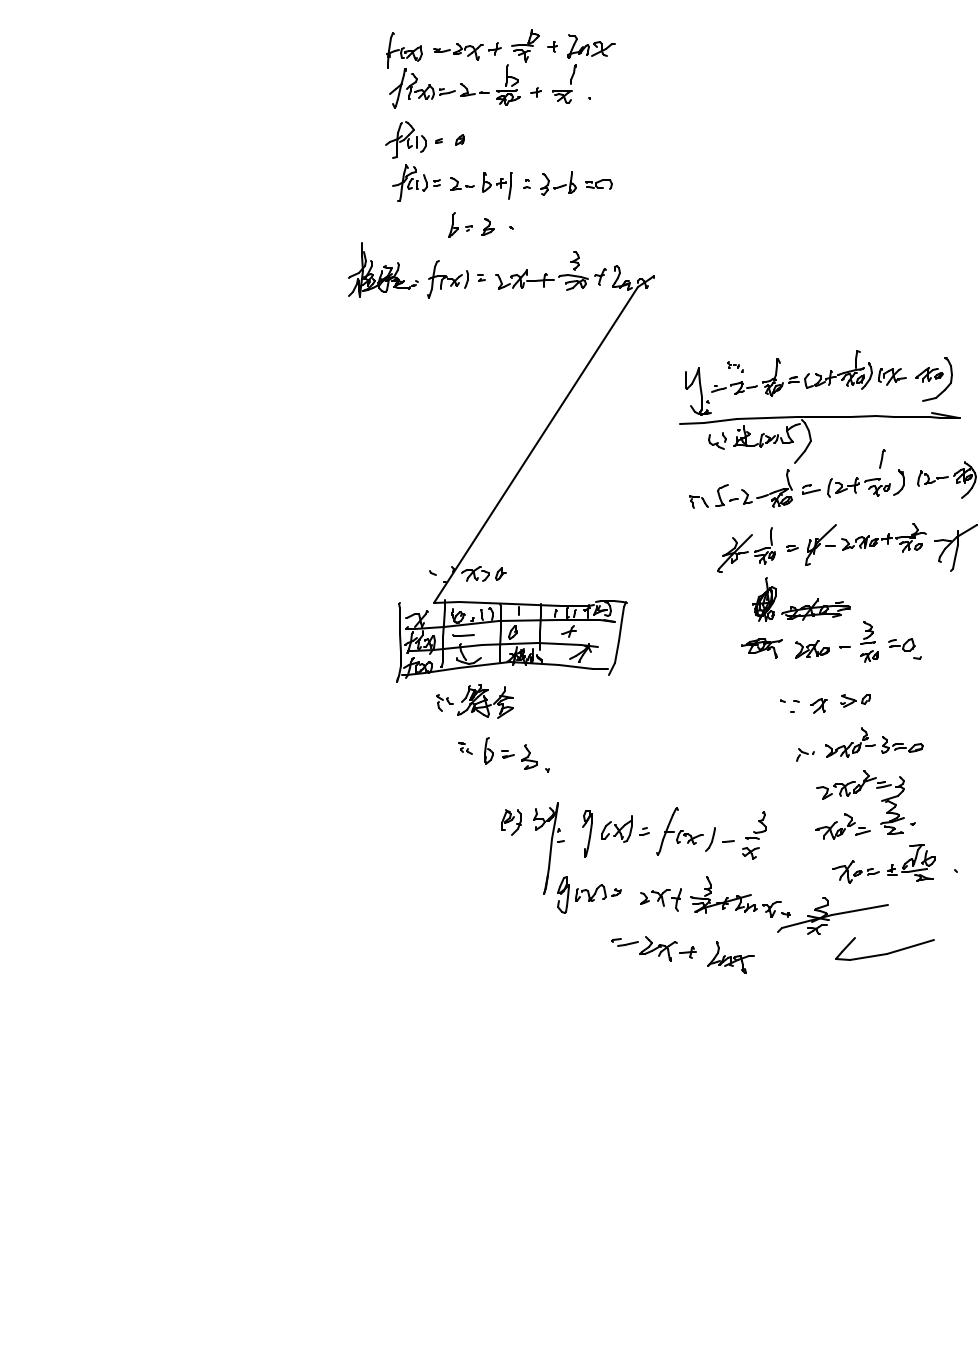 f(x)=2x+b/x+lnx
f'(x)=2-b/x²+1/x.
f'(1)=0
f'(1)=2-b+1=3-b=0
b=3.
检验: f(x)=2x+3/x+lnx
∵x>0
x (0,1) 1 (1,+∞)
f'(x) — 0 +
f(x) ↘ 极小 ↗
∴符合
∴b=3.
(2) g(x)=f(x)-3/x
g(x)=2x+3/x+lnx-3/x
=2x+lnx
y-2-1/x0=(2+1/x0)(x-x0)
∵过(2,5)
∴5-2-1/x0=(2+1/x0)(2-x0)
3-1/x0=4-2x0+2/x0-1
2x0=
2x0-3/x0=0
∵x>0
∴2x0²-3=0
2x0²=3
x0²=3/2.
x0=±√6/2.